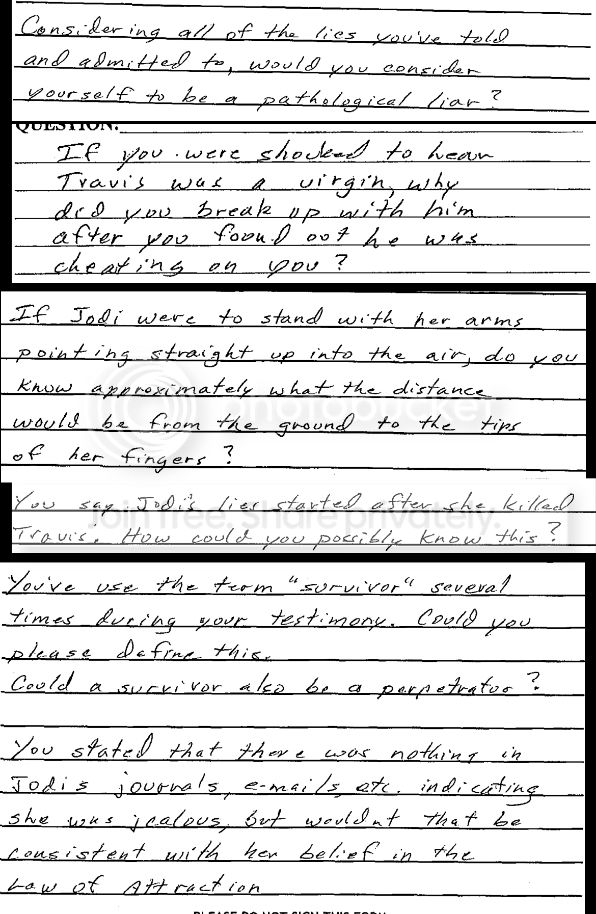 Considering all of the lies you've told
and admitted to, would you consider
yourself to be a pathological liar?
QUESTION:
If you were shocked to hear
Travis was a virgin, why
did you break up with him
after you found out he was
cheating on you?
If Jodi were to stand with her arms
pointing straight up into the air, do you
know approximately what the distance
would be from the ground to the tips
of her fingers?
You say Jodi's lies started after she killed
Travis. How could you possibly know this?
Join free. Share privately.
You've use the term "survivor" several
times during your testimony. Could you
please define this.
Could a survivor also be a perpetrator?
You stated that there was nothing in
Jodi's journals, e-mails, etc. indicating
she was jealous, but wouldnt that be
consistent with her belief in the
Law of Attraction
PLEASE DO NOT SIGN THIS FORM